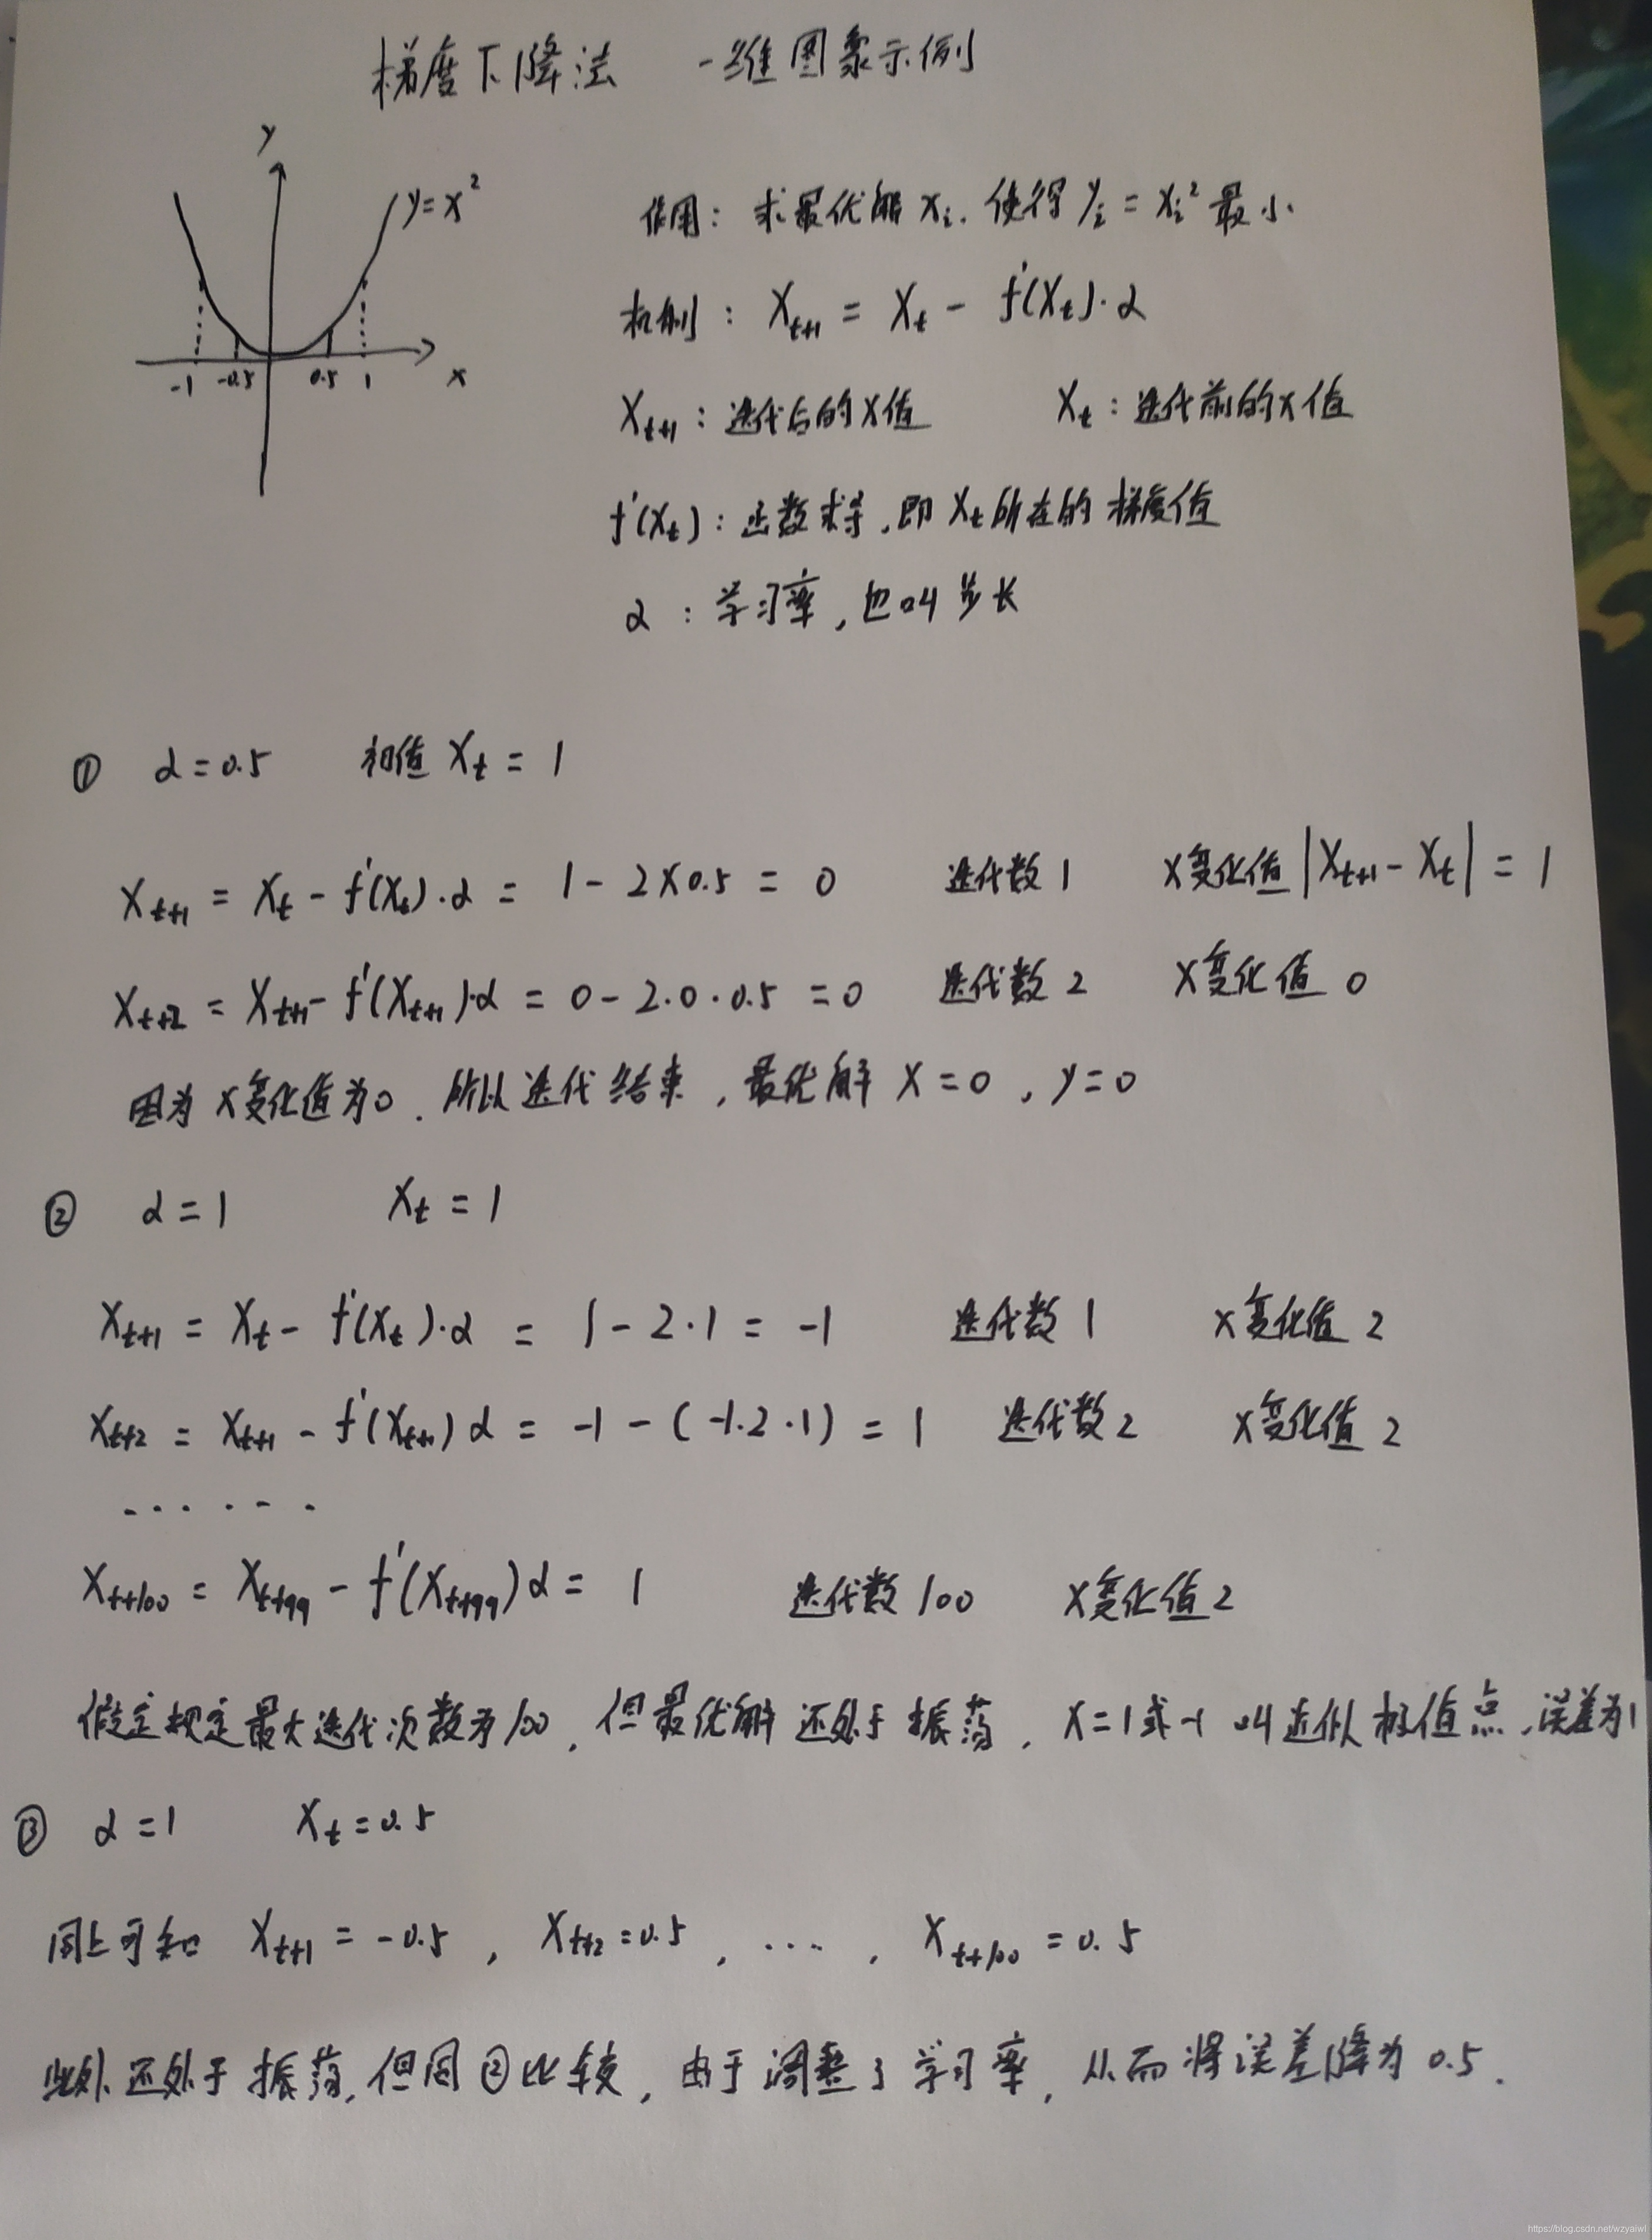 梯度下降法 一维图象示例
y
y=x²
-1 -0.5 0.5 1 x
作用：求最优解 xᵢ. 使得 yᵢ = xᵢ² 最小.
机制：Xₜ₊₁ = Xₜ - f'(Xₜ)·α
Xₜ₊₁：迭代后的X值 Xₜ：迭代前的X值
f'(Xₜ)：函数求导，即 Xₜ所在的 梯度值
α：学习率，也叫步长
① α=0.5 初值 Xₜ = 1
Xₜ₊₁ = Xₜ - f'(Xₜ)·α = 1 - 2×0.5 = 0 迭代数 1 X变化值 |Xₜ₊₁ - Xₜ| = 1
Xₜ₊₂ = Xₜ₊₁ - f'(Xₜ₊₁)·α = 0 - 2·0·0.5 = 0 迭代数 2 X变化值 0
因为 X变化值为0. 所以迭代结束，最优解 X=0，y=0
② α=1 Xₜ = 1
Xₜ₊₁ = Xₜ - f'(Xₜ)·α = 1 - 2·1 = -1 迭代数 1 X变化值 2
Xₜ₊₂ = Xₜ₊₁ - f'(Xₜ₊₁)α = -1 - (-1·2·1) = 1 迭代数 2 X变化值 2
......
Xₜ₊₁₀₀ = Xₜ₊₉₉ - f'(Xₜ₊₉₉)α = 1 迭代数 100 X变化值 2
假定规定最大迭代次数为100，但最优解还处于振荡，X=1或-1 叫近似极值点，误差为1
③ α=1 Xₜ=0.5
同上可知 Xₜ₊₁ = -0.5，Xₜ₊₂=0.5，...，Xₜ₊₁₀₀ = 0.5
此处还处于振荡，但同②比较，由于调整了学习率，从而将误差降为 0.5.
https://blog.csdn.net/wzyaiwl